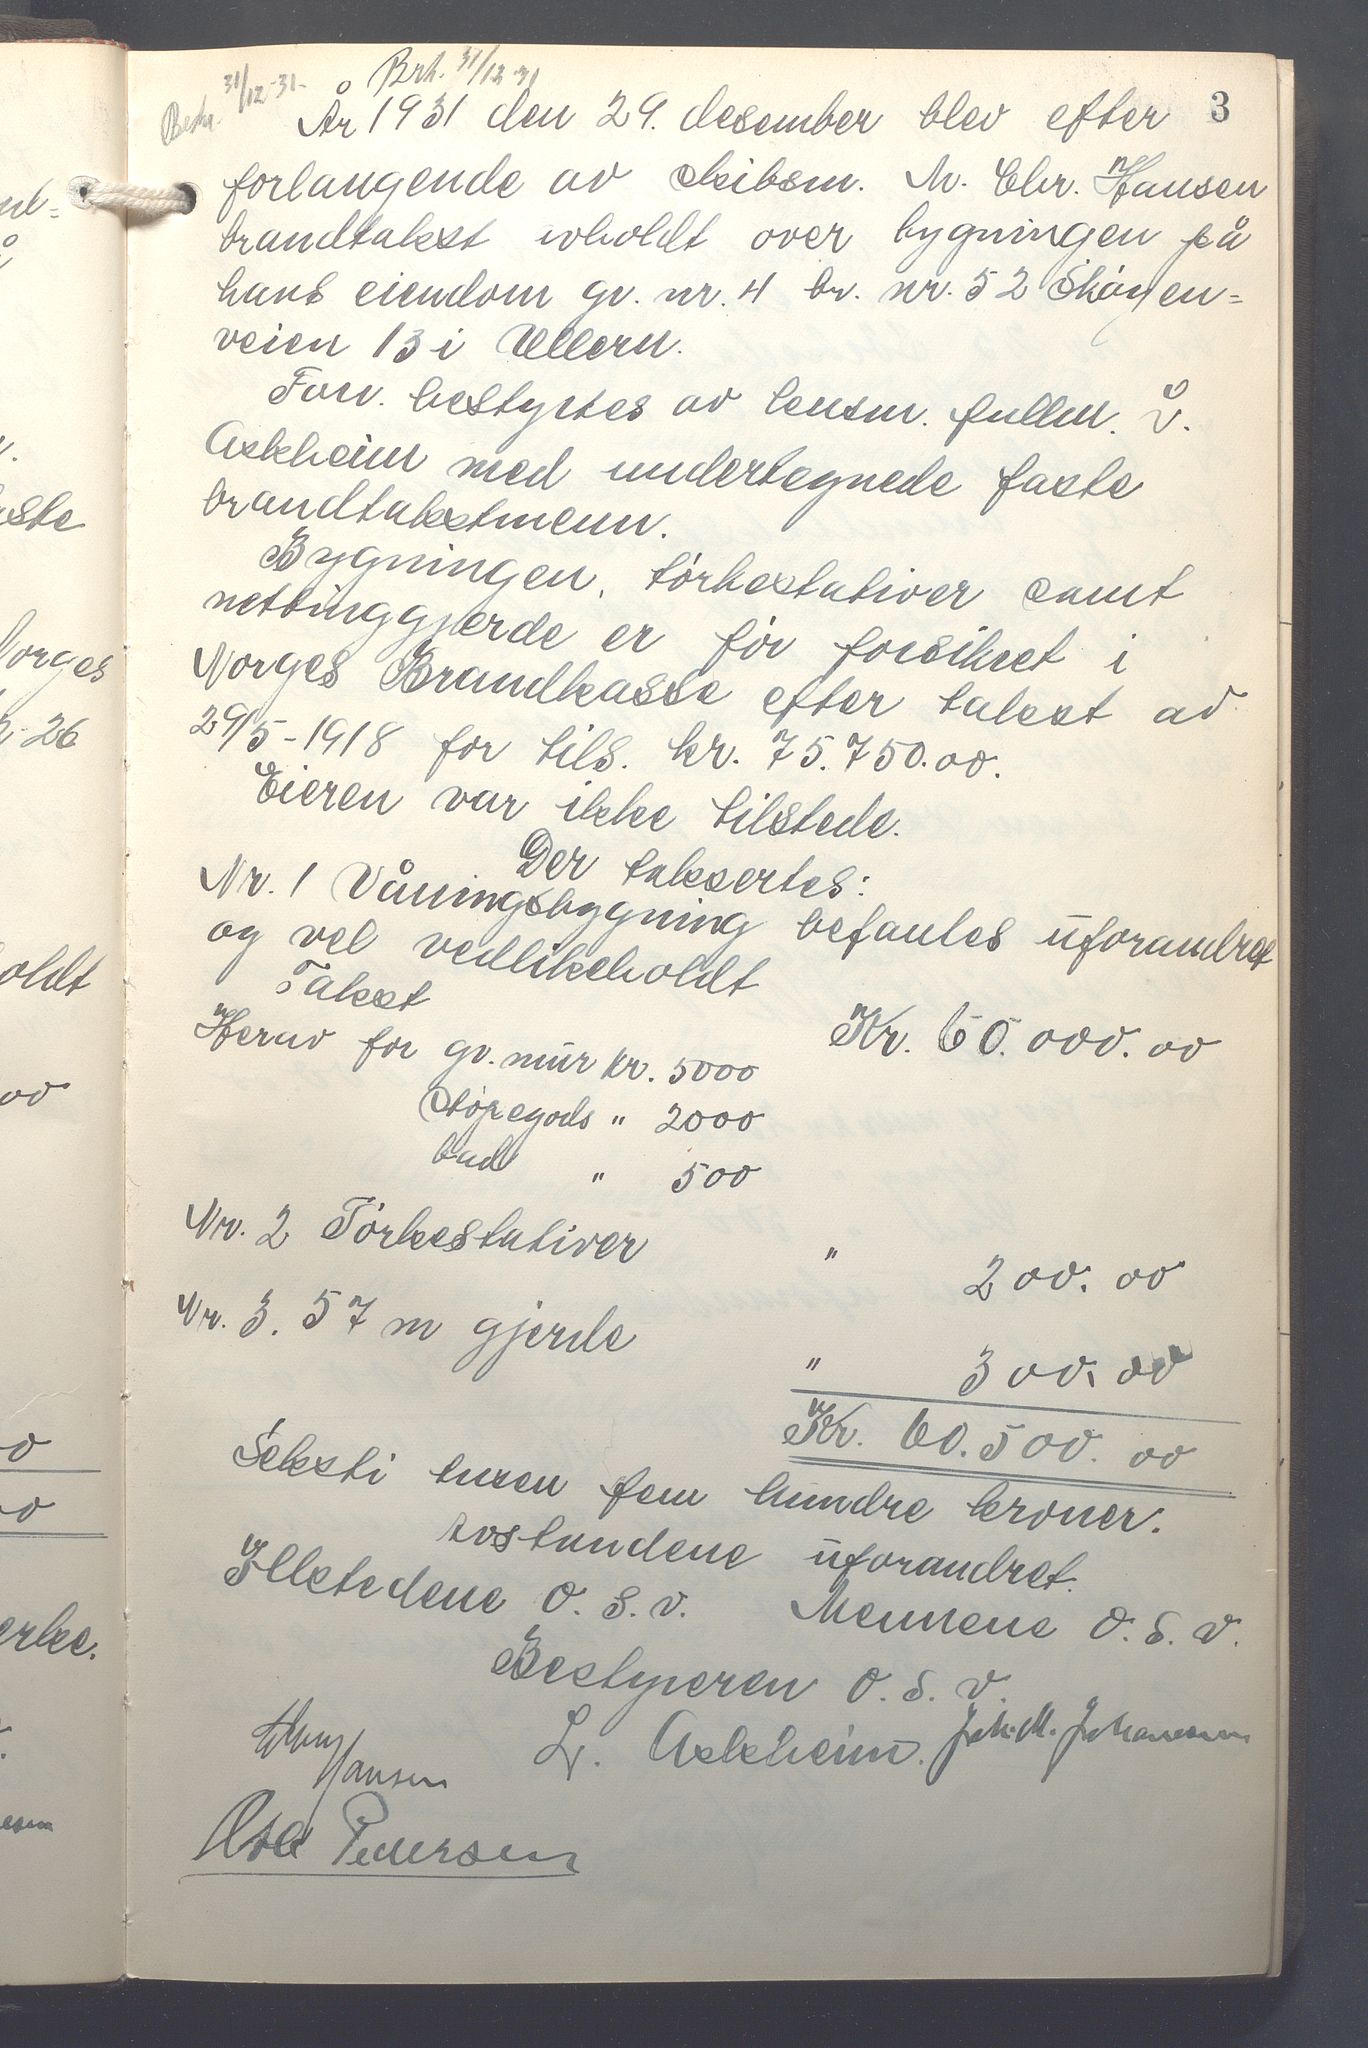 Brh. 31/12-31
Bekr. 31/12-31-
3
År 1931 den 29. desember blev efter
forlangende av skibsm. M. Chr. Hansen
brandtakst avholdt over bygningen på
hans eiendom gr. nr. 4 br. nr. 52 Skøyen-
veien 13 i Ullern.
Forr. bestyrtes av lensm. fullm.
Askheim med undertegnede faste
brandtakstmenn.
Bygningen, tørkestativer samt
nettinggjerde er før forsikret i
Norges Brandkasse efter takst av
29/5-1918 for tils. kr. 75.750.00.
Eieren var ikke tilstede.
Der taksertes:
Nr. 1 Våningsbygning befantes uforandret
og vel vedlikeholdt
Takst Kr. 60.000.00
Herav for gr. mur kr. 5000
støpegods " 2000
bad " 500
Nr. 2 Tørkestativer " 200.00
Nr. 3. 57 m gjerde " 300.00
Kr. 60.500.00
Seksti tusen fem hundre kroner.
Ildstedene o.s.v. avstandene uforandret.
Mennene o.s.v.
Bestyreren o.s.v.
Hansen
Askheim. Joh. M. Johannesen
Pedersen